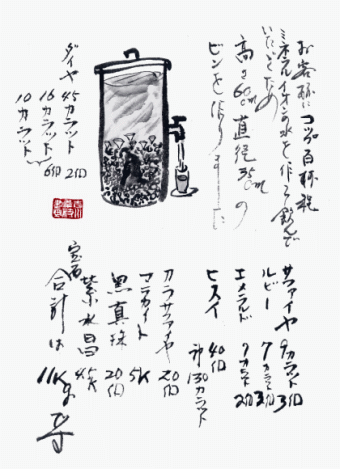 お客様にコップ百杯程
ミネラルイオンの水を作って飲んで
いただくため
高さ60cm 直径35cmの
ビンを作りました
ダイヤ 45カラット 2個
16カラット 6個
10カラット
サファイヤ 9カラット 3個
ルビー 7カラット 3個
エメラルド 7カラット 2個
ヒスイ 40個
計130カラット
カラーサファイヤ 20個
マラカイト 5K
黒真珠 20個
紫水晶
宝石
合計は 11Kまです